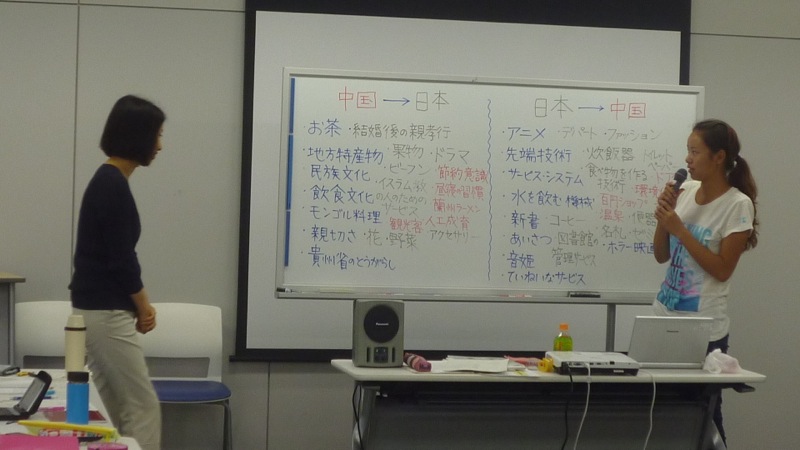 中国→日本
お茶・結婚後の親孝行
・地方特産物・果物・ドラマ
民族文化・ビーフン 節約意識
・飲食文化・イスラム教の人のためのサービス 昼寝の習慣
モンゴル料理 観光客 蘭州ラーメン
・親切さ・花・野菜 アクセサリー
・貴州省のとうがらし
日本→中国
・アニメ・デパート・ファッション
先端技術・炊飯器
・サービス・システム 食べ物を作る技術
・水を飲む機械 百円ショップ
・新書 コーヒー 温泉
・あいさつ 図書館の管理サービス ・ホラー映画
・音姫
・ていねいなサービス
Panasonic